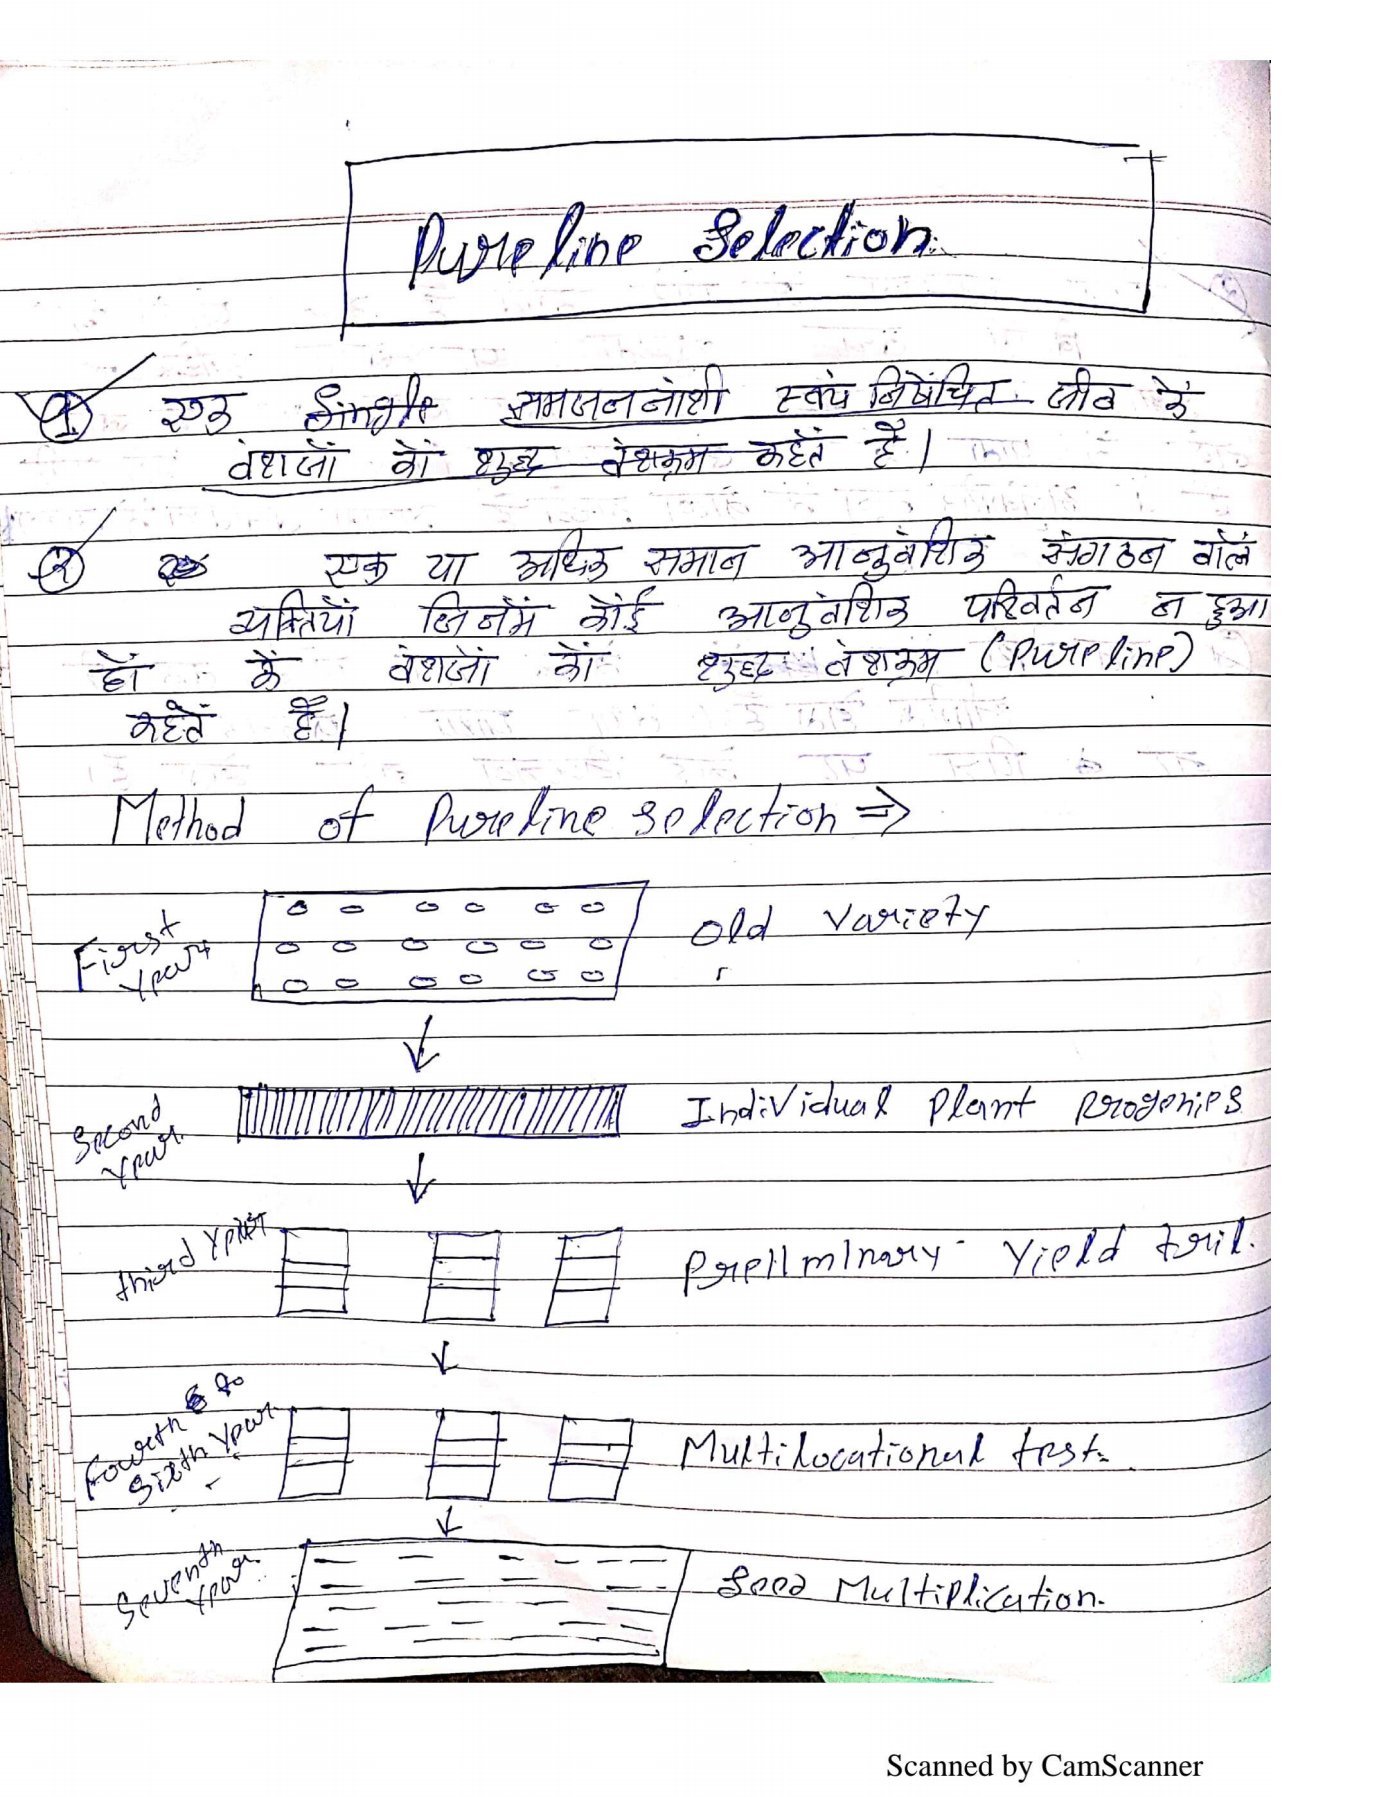 Pureline Selection.
① एक Single समजननांशी स्वयं निषेचित जीव के
वंशजों को शुद्ध वंशक्रम कहते है।
② एक या अधिक समान आनुवंशिक संगठन वाले
व्यक्तियों जिनमें कोई आनुवंशिक परिवर्तन न हुआ
हो के वंशजों को शुद्ध वंशक्रम (Pureline)
कहते है।
Method of Pureline selection ⇒
First Year
Old Variety
Second Year.
Individual Plant Progenies
third Year
Preliminary Yield tril.
Fourth to Sixth Year
Multilocational test.
Seventh Year.
Seed Multiplication.
Scanned by CamScanner